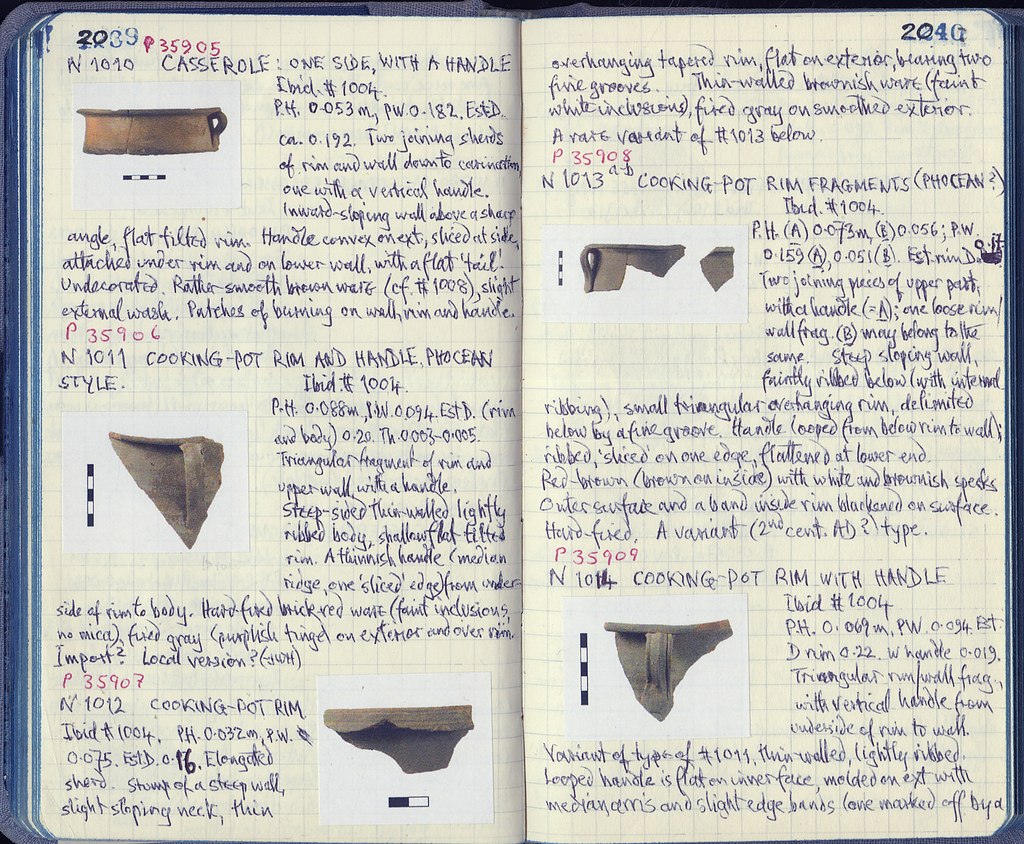 2039
P 35905
N 1010 CASSEROLE: ONE SIDE, WITH A HANDLE
Ibid. # 1004.
P.H. 0.053 m, PW. 0.182, Est D.
ca. 0.192. Two joining sherds
of rim and wall down to carination,
one with a vertical handle.
Inward-sloping wall above a sharp
angle, flat tilted rim. Handle convex on ext, sliced at side,
attached under rim and on lower wall, with a flat 'tail'.
Undecorated. Rather smooth brown ware (cf. # 1008), slight
external wash. Patches of burning on wall, rim and handle.
P 35906
N 1011 COOKING-POT RIM AND HANDLE, PHOCEAN
STYLE. Ibid # 1004.
P.H. 0.088m, P.W. 0.094. Est D. (rim
and body) 0.20. Th. 0.003-0.005.
Triangular fragment of rim and
upper wall, with a handle.
Steep-sided thin-walled, lightly
ribbed body, shallow flat tilted
rim. A thinnish handle (median
ridge, one 'sliced' edge) from under-
side of rim to body. Hard-fired brick-red ware (faint inclusions,
no mica), fired gray (purplish tinge) on exterior and over rim.
Import? Local version? (-JWH)
P 35907
N 1012 COOKING-POT RIM
Ibid # 1004. PH. 0.032 m, P.W.
0.075. EST D. 0.16. Elongated
sherd. Stump of a steep wall,
slight sloping neck, thin
2040
overhanging tapered rim, flat on exterior, bearing two
fine grooves. Thin-walled brownish ware (faint
white inclusions), fired gray on smoothed exterior.
A rare variant of # 1013 below.
P 35908
N 1013 a-b COOKING-POT RIM FRAGMENTS (PHOCEAN?)
Ibid. # 1004.
P.H. (A) 0.073m, (B) 0.056; P.W.
0.159 (A), 0.051 (B). Est. rim D. 0.17
Two joining pieces of upper part,
with a handle (=A); one loose rim/
wall frag. (B) may belong to the
same. Steep sloping wall,
faintly ribbed below (with internal
ribbing), small triangular overhanging rim, delimited
below by a fine groove. Handle looped from below rim to wall;
ribbed, 'sliced' on one edge, flattened at lower end.
Red-brown (brown on inside) with white and brownish specks
Outer surface and a band inside rim blackened on surface.
Hard-fired. A variant (2nd cent. AD?) type.
P 35909
N 1014 COOKING-POT RIM WITH HANDLE
Ibid # 1004
PH. 0.069 m, PW. 0.094 Est.
D rim 0.22. W handle 0.019.
Triangular rim/wall frag.,
with vertical handle from
underside of rim to wall.
Variant of type of # 1011, thin-walled, lightly ribbed.
Looped handle is flat on inner face, molded on ext with
median arris and slight edge bands (one marked off by a